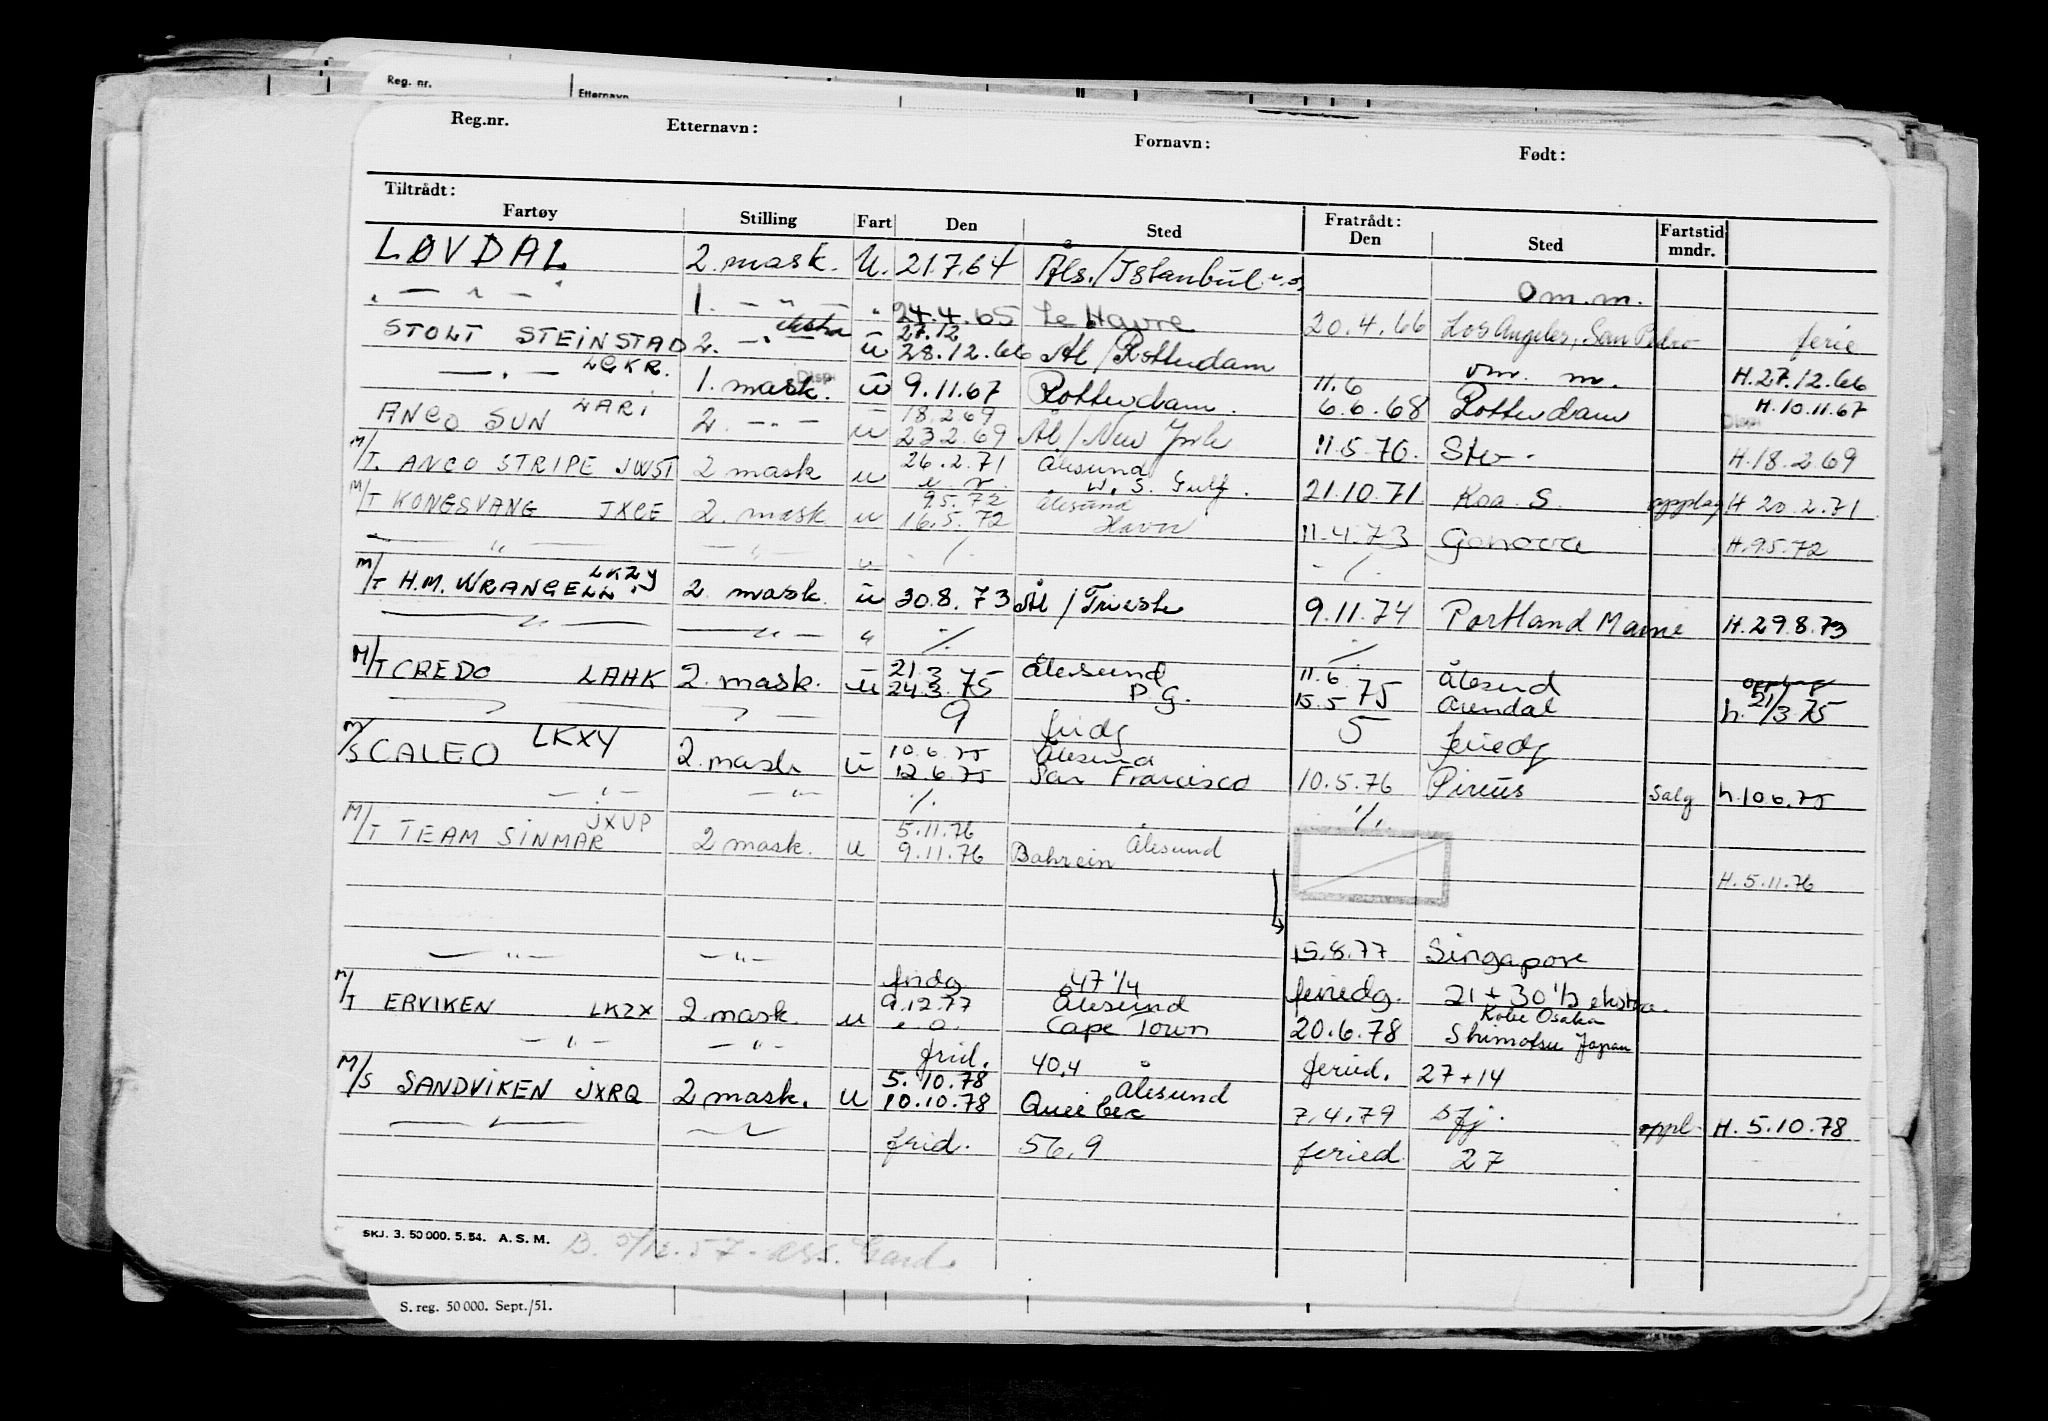 Reg. nr. Etternavn
Reg.nr. Etternavn: Fornavn: Født:
Tiltrådt: Fratrådt:
Fartøy Stilling Fart Den Sted Den Sted Fartstid mndr.
LØVDAL 2. mask. U. 21.7.64 Åls./Istanbul
" — " — " 1. — " — " 24.4.65 Le Havre 20.4.66 Om.m.
Los Angeles, San Pedro ferie
STOLT STEINSTAD 2. — " — ekstra u 27.12 28.12.66 Ål/Rotterdam om. m. H.27.12.66
— " — LGKR. 1. mask. Disp u 9.11.67 Rotterdam. 11.6 6.6.68 Rotterdam H.10.11.67
ANCO SUN LARI 2. — " — u 18.2.69 23.2.69 Ål/New York 11.5.70. Sto. H.18.2.69
M/T. ANCO STRIPE JWST 2 mask u 26.2.71 Ålesund
u.r. U.S. Gulf. 21.10.71 Koa. S. opplag H 20.2.71
M/T KONGSVANG JXCE 2. mask u 9.5.72 Ålesund
16.5.72 Havn 11.4.73 Genova H.9.5.72
— " — — " — u ./. ./.
M/T H.M. WRANGELL LKZY 2. mask. u 30.8.73 Ål/Trieste 9.11.74 Portland Maine H.29.8.73
— " — — " — " ./. ./.
M/T CREDO LAHK 2. mask. u 21.3 24.3.75 Ålesund P.G. 11.6 15.5.75 Ålesund Arendal h. 21/3 75
— " — — " — 9 fridg 5 feriedg
M/S CALEO LKXY 2. mask u 10.6.75 Ålesund
12.6.75 San Francisco 10.5.76 Pireus Salg h.10.6.75
— " — — " — ./. ./.
M/T TEAM SINMAR JXUP 2 mask. u 5.11.76 Ålesund
9.11.76 Bahrein H. 5.11.76
— " — — " — 15.8.77 Singapore
fridg 47 1/4 feriedg. 21 + 30 1/2 ekstra.
M/T ERVIKEN LKZX 2. mask. u 9.12.77 Ålesund
Cape Town 20.6.78 Kobe Osaka Shimotsu Japan
— " — — " — frid. 40,4 feried. 27+14
M/S SANDVIKEN JXRQ 2 mask. u 5.10.78 Ålesund
10.10.78 Queibec 7.4.79 Sfj. oppl. H. 5.10.78
— " — — " — frid. 56,9 feried 27
SKJ. 3. 50 000. 5. 54. A. S. M.
S. reg. 50 000. Sept./51.